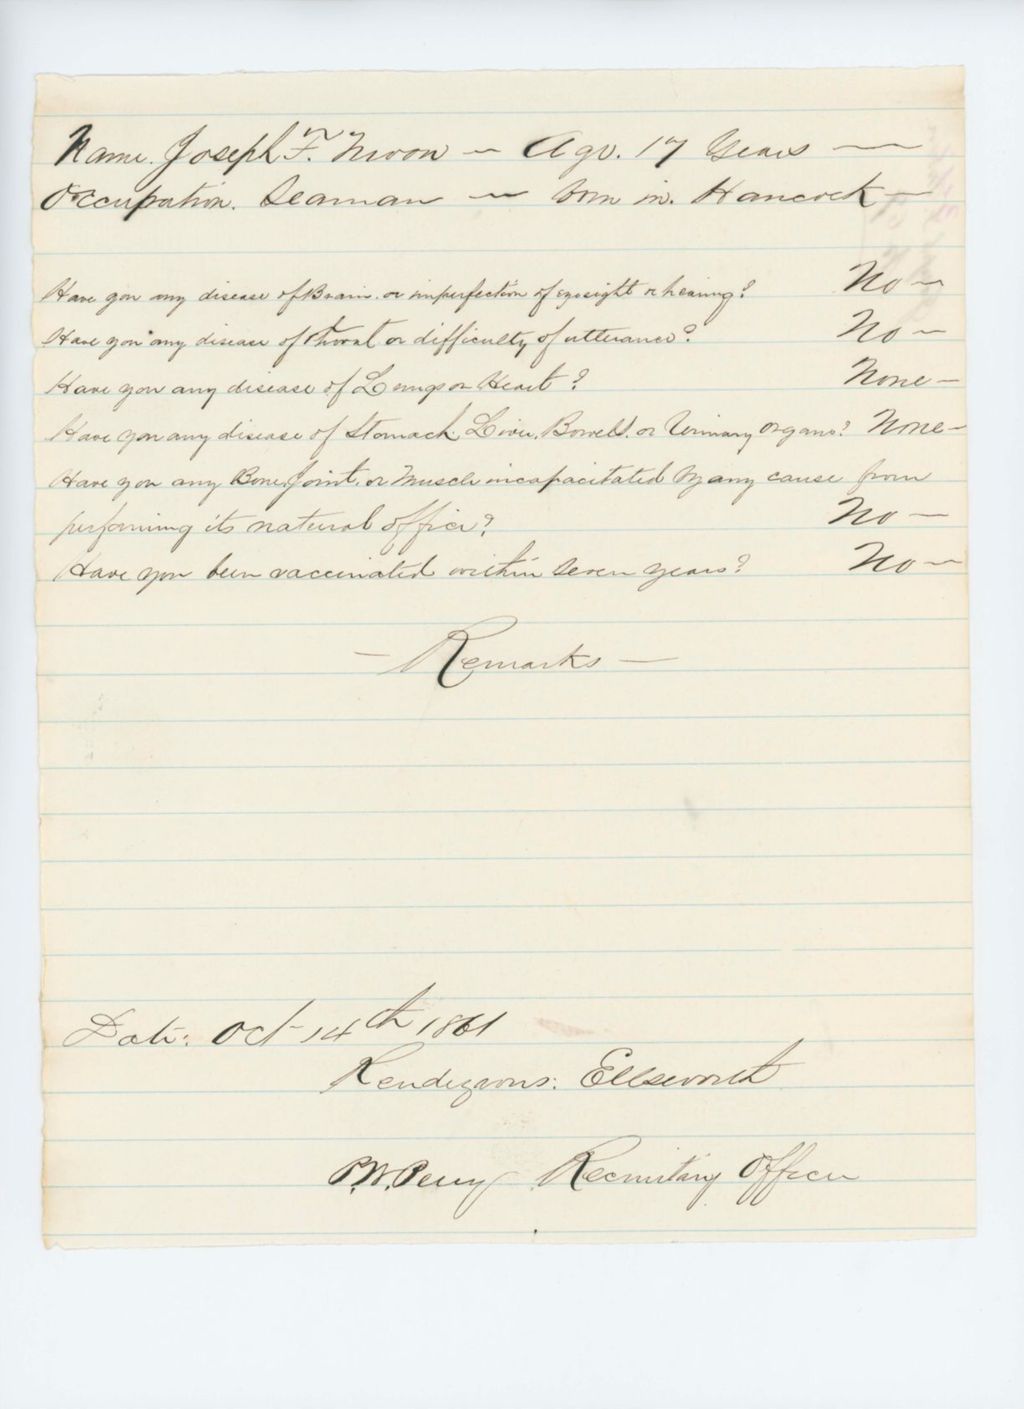 Name. Joseph F. Moon — Age. 17 Years —
Occupation. Seaman — born in. Hancock —
Have you any disease of Brain. or imperfection of eyesight or hearing? No —
Have you any disease of throat or difficulty of utterance? No —
Have you any disease of Lungs or Heart? None —
Have you any disease of Stomach. Liver, Bowels. or Urinary organs? None —
Have you any Bone, Joint, or Muscle incapacitated by any cause from
performing its natural office? No —
Have you been vaccinated within seven years? No —
— Remarks —
Date: Oct 14th 1861
Rendezvous: Ellsworth
P.W. Perry Recruiting Officer